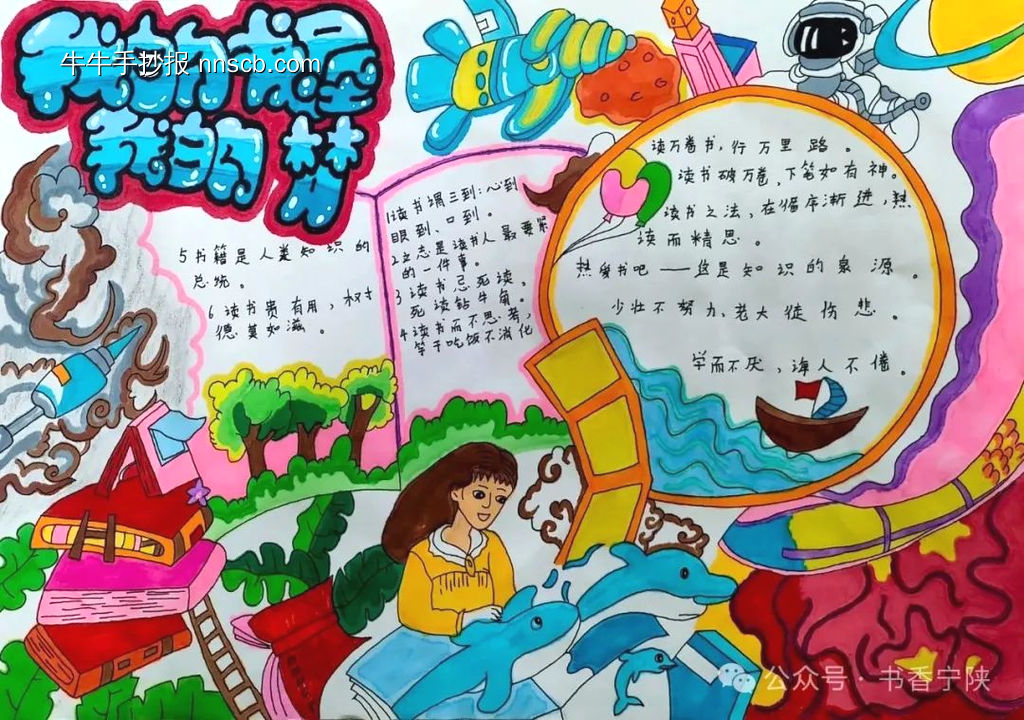 我的书屋
我的梦
牛牛手抄报 nnscb.com
5书籍是人类知识的
总统。
6读书贵有用，树
德莫如滋。
1读书谓三到:心到
眼到、口到。
2立志是读书人最要紧
的一件事。
3读书忌死读。
死读钻牛角。
4读书而不思考，
等于吃饭不消化
读万卷书,行万里路。
读书破万卷,下笔如有神。
读书之法，在循序渐进，熟
读而精思。
热爱书吧——这是知识的泉源。
少壮不努力,老大徒伤悲。
学而不厌，诲人不倦。
公众号·书香宁陕